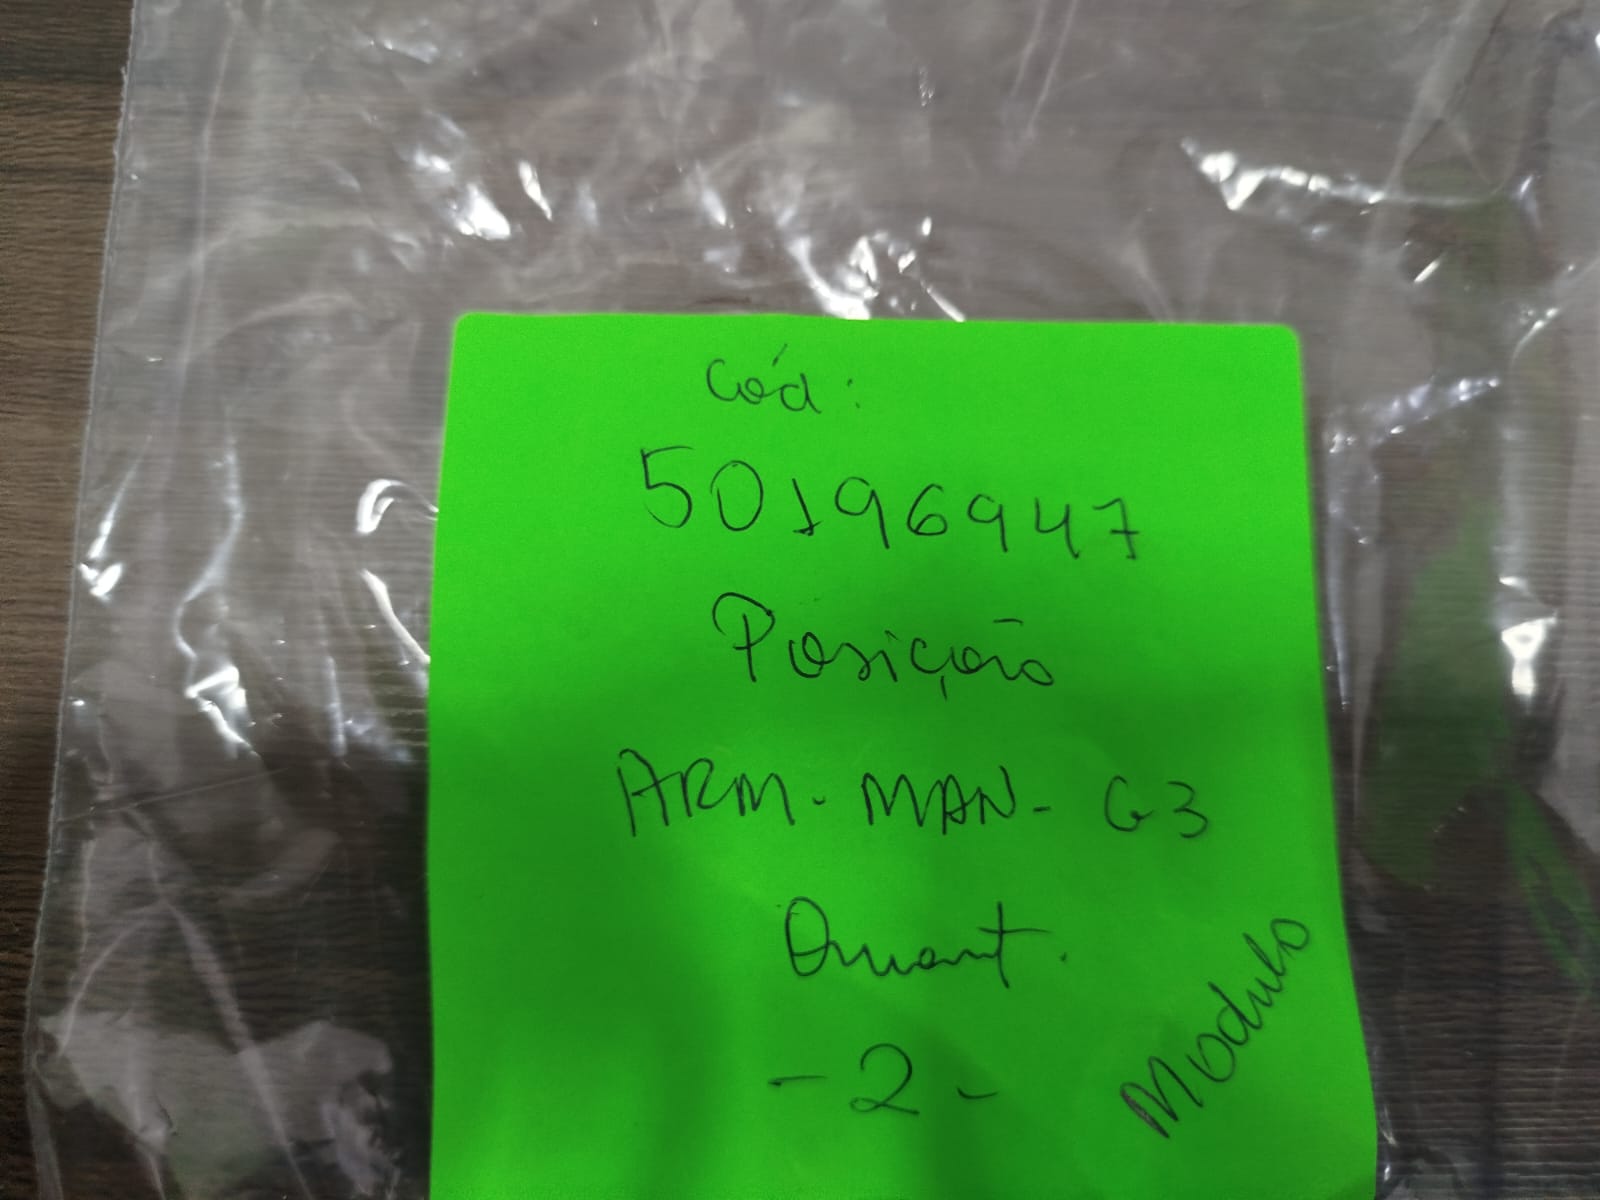 Cód:
50196947
Posição
ARM - MAN - G3
Quant.
- 2 -
Modulo